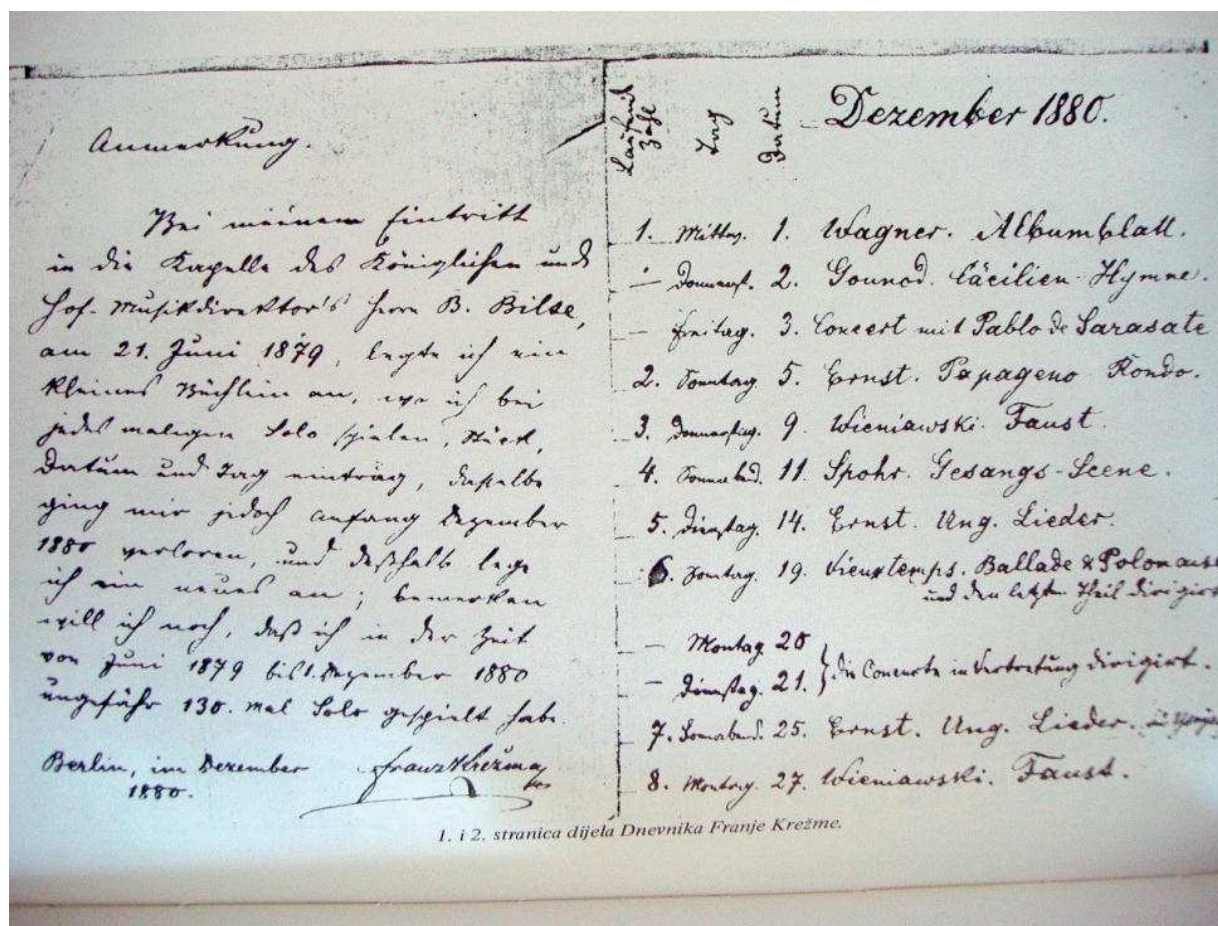 Anmerkung.
Bei meinem Eintritt
in die Kapelle des Königlichen und
Hof-Musikdirektor's Herrn B. Bilse,
am 21. Juni 1879, legte ich ein
kleines Büchlein an, wo ich bei
jedes maligen Solo spielen, Stück,
Datum und Tag eintrug, dasselbe
ging mir jedoch Anfang Dezember
1880 verloren, und deßhalb lege
ich ein neues an; bemerken
will ich noch, daß ich in der Zeit
von Juni 1879 bis 1. Dezember 1880
ungefähr 130. mal Solo gespielt habe.
Berlin, im Dezember
1880.
Franz Krežma
Laufende Zahl
Tag
Datum
Dezember 1880.
1. Mittw. 1. Wagner. Albumblatt.
— Donnerst. 2. Gounod. Cäcilien-Hymne.
— Freitag. 3. Concert mit Pablo de Sarasate
2. Sonntag 5. Ernst. Papageno Rondo.
3. Donnerstag. 9. Wieniawski. Faust.
4. Sonnabend. 11. Spohr. Gesangs-Scene.
5. Dienstag. 14. Ernst. Ung. Lieder.
6. Sonntag. 19. Vieuxtemps. Ballade & Polonaise
und den letzten Theil dirigirt
— Montag 20
— Dienstag. 21. } die Concerte in Vertretung dirigirt.
7. Sonnabend. 25. Ernst. Ung. Lieder.
8. Montag. 27. Wieniawski. Faust.
1. i 2. stranica dijela Dnevnika Franje Krežme.